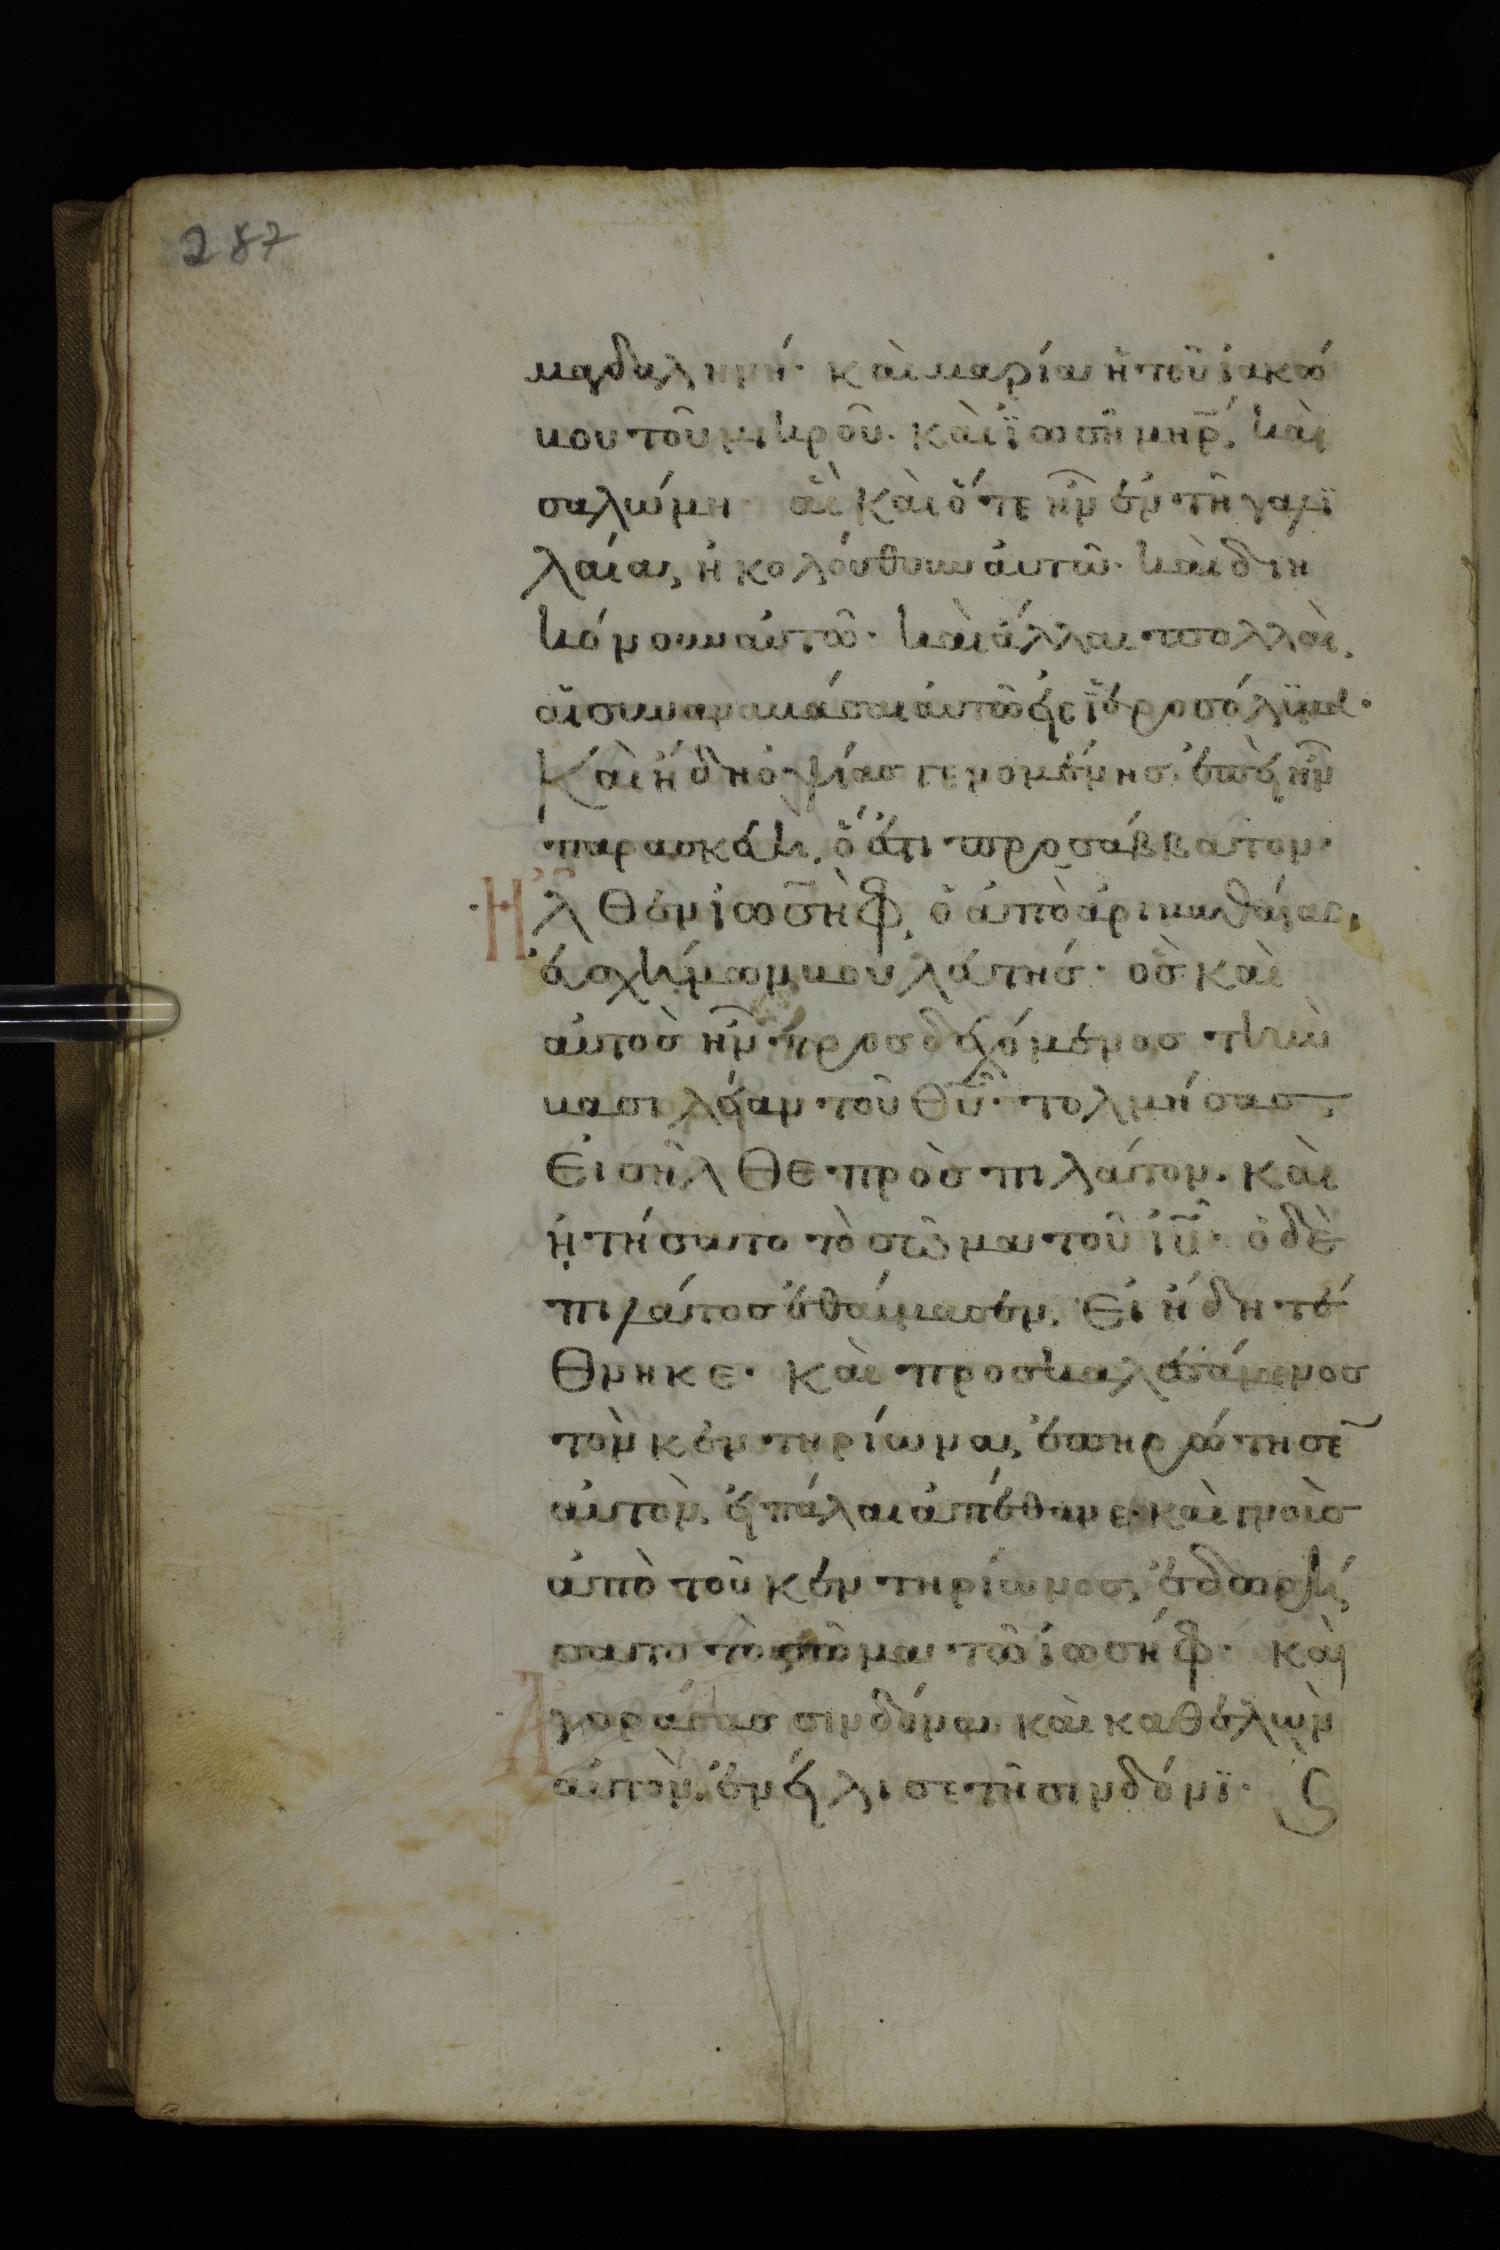 287
μαγδαληνή· καὶ μαρία ἡ τοῦ ἰακώ
βου τοῦ μικροῦ· καὶ ἰ̈ωσῆ μη̅ρ, καὶ
σαλώμη· αἳ καὶ ὅτε ἦν ἐν τῆ γαλι
λαία, ἠκολούθουν αὐτῶ· καὶ διη
κόνουν αὐτῶ· καὶ ἄλλαι πολλαὶ,
αἱ συναναβᾶσαι αὐτῶ εἰς ϊεροσόλυμα·
Καὶ ἤδη ὀψίας γενομένης, ἐπεὶ ἦν
παρασκευὴ, ὅ ἐστι προσάββατον·
Ἦλθεν ἰωσὴφ, ὁ ἀπὸ ἀριμαθαίας,
εὐσχήμων βουλευτής· ὃς καὶ
αὐτὸς ἦν προσδεχόμενος τὴν
βασιλείαν τοῦ θ̅υ̅· τολμήσας,
Εἰσῆλθε πρὸς πιλάτον· καὶ
ἠτήσατο τὸ σῶμα τοῦ ἰ̅υ̅· ὁ δὲ
πιλάτος ἐθαύμασεν, Εἰ ἤδη τέ
θνηκε· καὶ προσκαλεσάμενος
τὸν κεντηρίωνα, ἐπηρώτησε
αὐτὸν, εἰ πάλαι ἀπέθανε· καὶ γνοὺς
ἀπὸ τοῦ κεντηρίωνος, ἐδωρή
σατο τὸ σῶμα τῶ ἰωσήφ· καὶ
Ἀγοράσας σινδόνα, καὶ καθελὼν
αὐτὸν, ἐνείλισε τῆ σινδόνϊ· ϛ